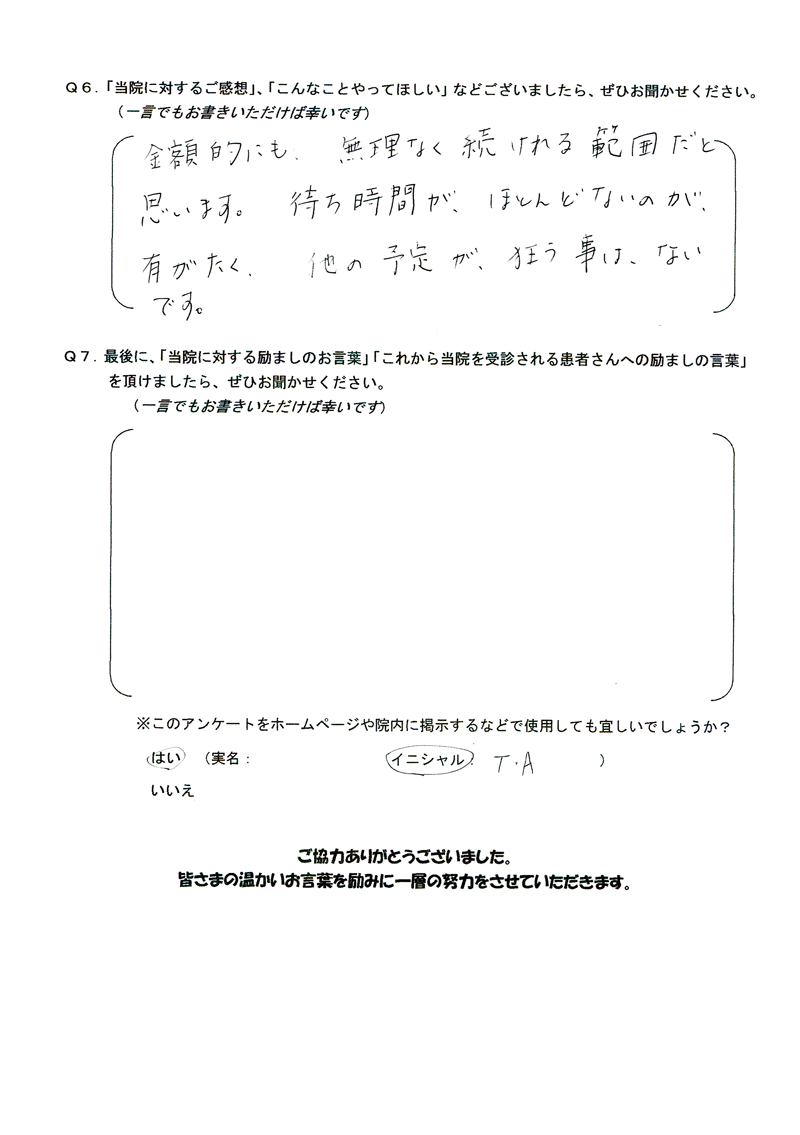 Q6.「当院に対するご感想」、「こんなことやってほしい」などございましたら、ぜひお聞かせください。
（一言でもお書きいただけば幸いです）
金額的にも、無理なく続けれる範囲だと
思います。待ち時間が、ほとんどないのが、
有がたく、他の予定が、狂う事は、ない
です。
Q7.最後に、「当院に対する励ましのお言葉」「これから当院を受診される患者さんへの励ましの言葉」
を頂けましたら、ぜひお聞かせください。
（一言でもお書きいただけば幸いです）
※このアンケートをホームページや院内に掲示するなどで使用しても宜しいでしょうか？
はい （実名： イニシャル： T・A ）
いいえ
ご協力ありがとうございました。
皆さまの温かいお言葉を励みに一層の努力をさせていただきます。